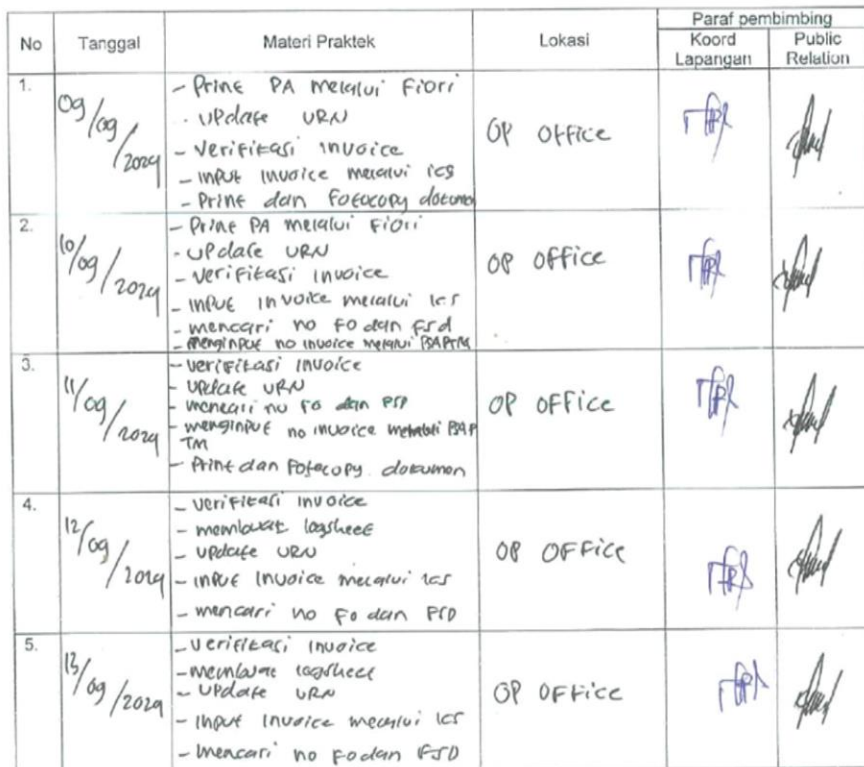 No Tanggal Materi Praktek Lokasi Paraf pembimbing
Koord Lapangan Public Relation
1. 09/09/2024
- Print PA melalui Fiori
- UPdate URN
- Verifikasi invoice
- input invoice melalui ics
- Print dan Fotocopy dokumen
OP Office
2. 10/09/2024
- Print PA melalui Fiori
- UPdate URN
- Verifikasi invoice
- input invoice melalui ics
- mencari no Fo dan FSD
- menginput no invoice melalui PSAPTM
OP Office
3. 11/09/2024
- verifikasi invoice
- update URN
- mencari no Fo dan FSD
- menginput no invoice melalui PSAP
TM
- Print dan Fotocopy dokumen
OP Office
4. 12/09/2024
- verifikasi invoice
- membuat logsheet
- update URN
- input Invoice melalui ics
- mencari no Fo dan FSD
OP Office
5. 13/09/2024
- verifikasi invoice
- membuat logsheet
- UPdate URN
- input Invoice melalui ics
- mencari no Fo dan FSD
OP Office